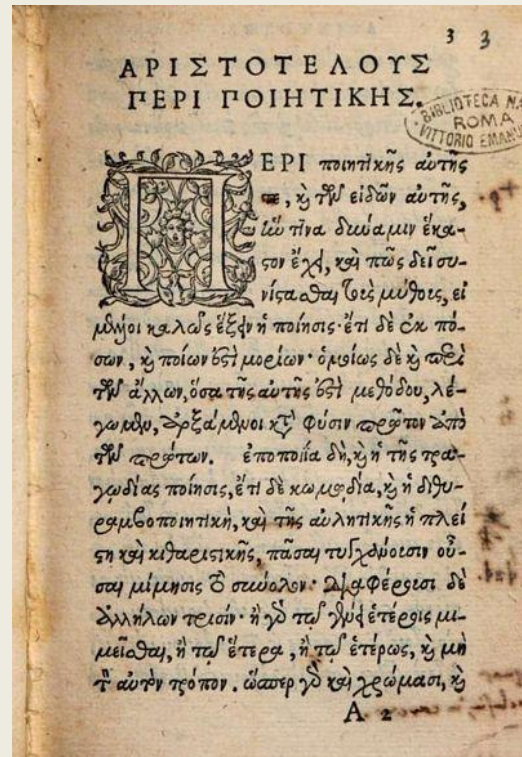 3 3
ΑΡΙΣΤΟΤΕΛΟΥΣ
ΠΕΡΙ ΠΟΙΗΤΙΚΗΣ.
BIBLIOTECA NA
ROMA
VITTORIO EMANU
ΠΕΡΙ ποιητικῆς αὐτῆς
τε, καὶ τῶν εἰδῶν αὐτῆς,
ἥν τινα δύναμιν ἕκα-
στον ἔχει, καὶ πῶς δεῖ συ-
νίστασθαι τοὺς μύθους, εἰ
μέλλοι καλῶς ἕξειν ἡ ποίησις· ἔτι δὲ ἐκ πό-
σων, καὶ ποίων ἐστὶ μορίων· ὁμοίως δὲ καὶ περὶ
τῶν ἄλλων, ὅσα τῆς αὐτῆς ἐστὶ μεθόδου, λέ-
γωμεν, ἀρξάμενοι κατὰ φύσιν πρῶτον ἀπὸ
τῶν πρώτων. ἐποποιΐα δὴ, καὶ ἡ τῆς τρα-
γῳδίας ποίησις, ἔτι δὲ κωμῳδία, καὶ ἡ διθυ-
ραμβοποιητικὴ, καὶ τῆς αὐλητικῆς ἡ πλεί
στη καὶ κιθαριστικῆς, πᾶσαι τυγχάνουσιν οὖ-
σαι μίμησις τὸ σύνολον· διαφέρουσι δὲ
ἀλλήλων τρισίν· ἢ γὰρ τῷ γένει ἑτέροις μι-
μεῖσθαι, ἢ τῷ ἕτερα, ἢ τῷ ἑτέρως, καὶ μὴ
τὸν αὐτὸν τρόπον. ὥσπερ γὰρ καὶ χρώμασι, καὶ
A 2